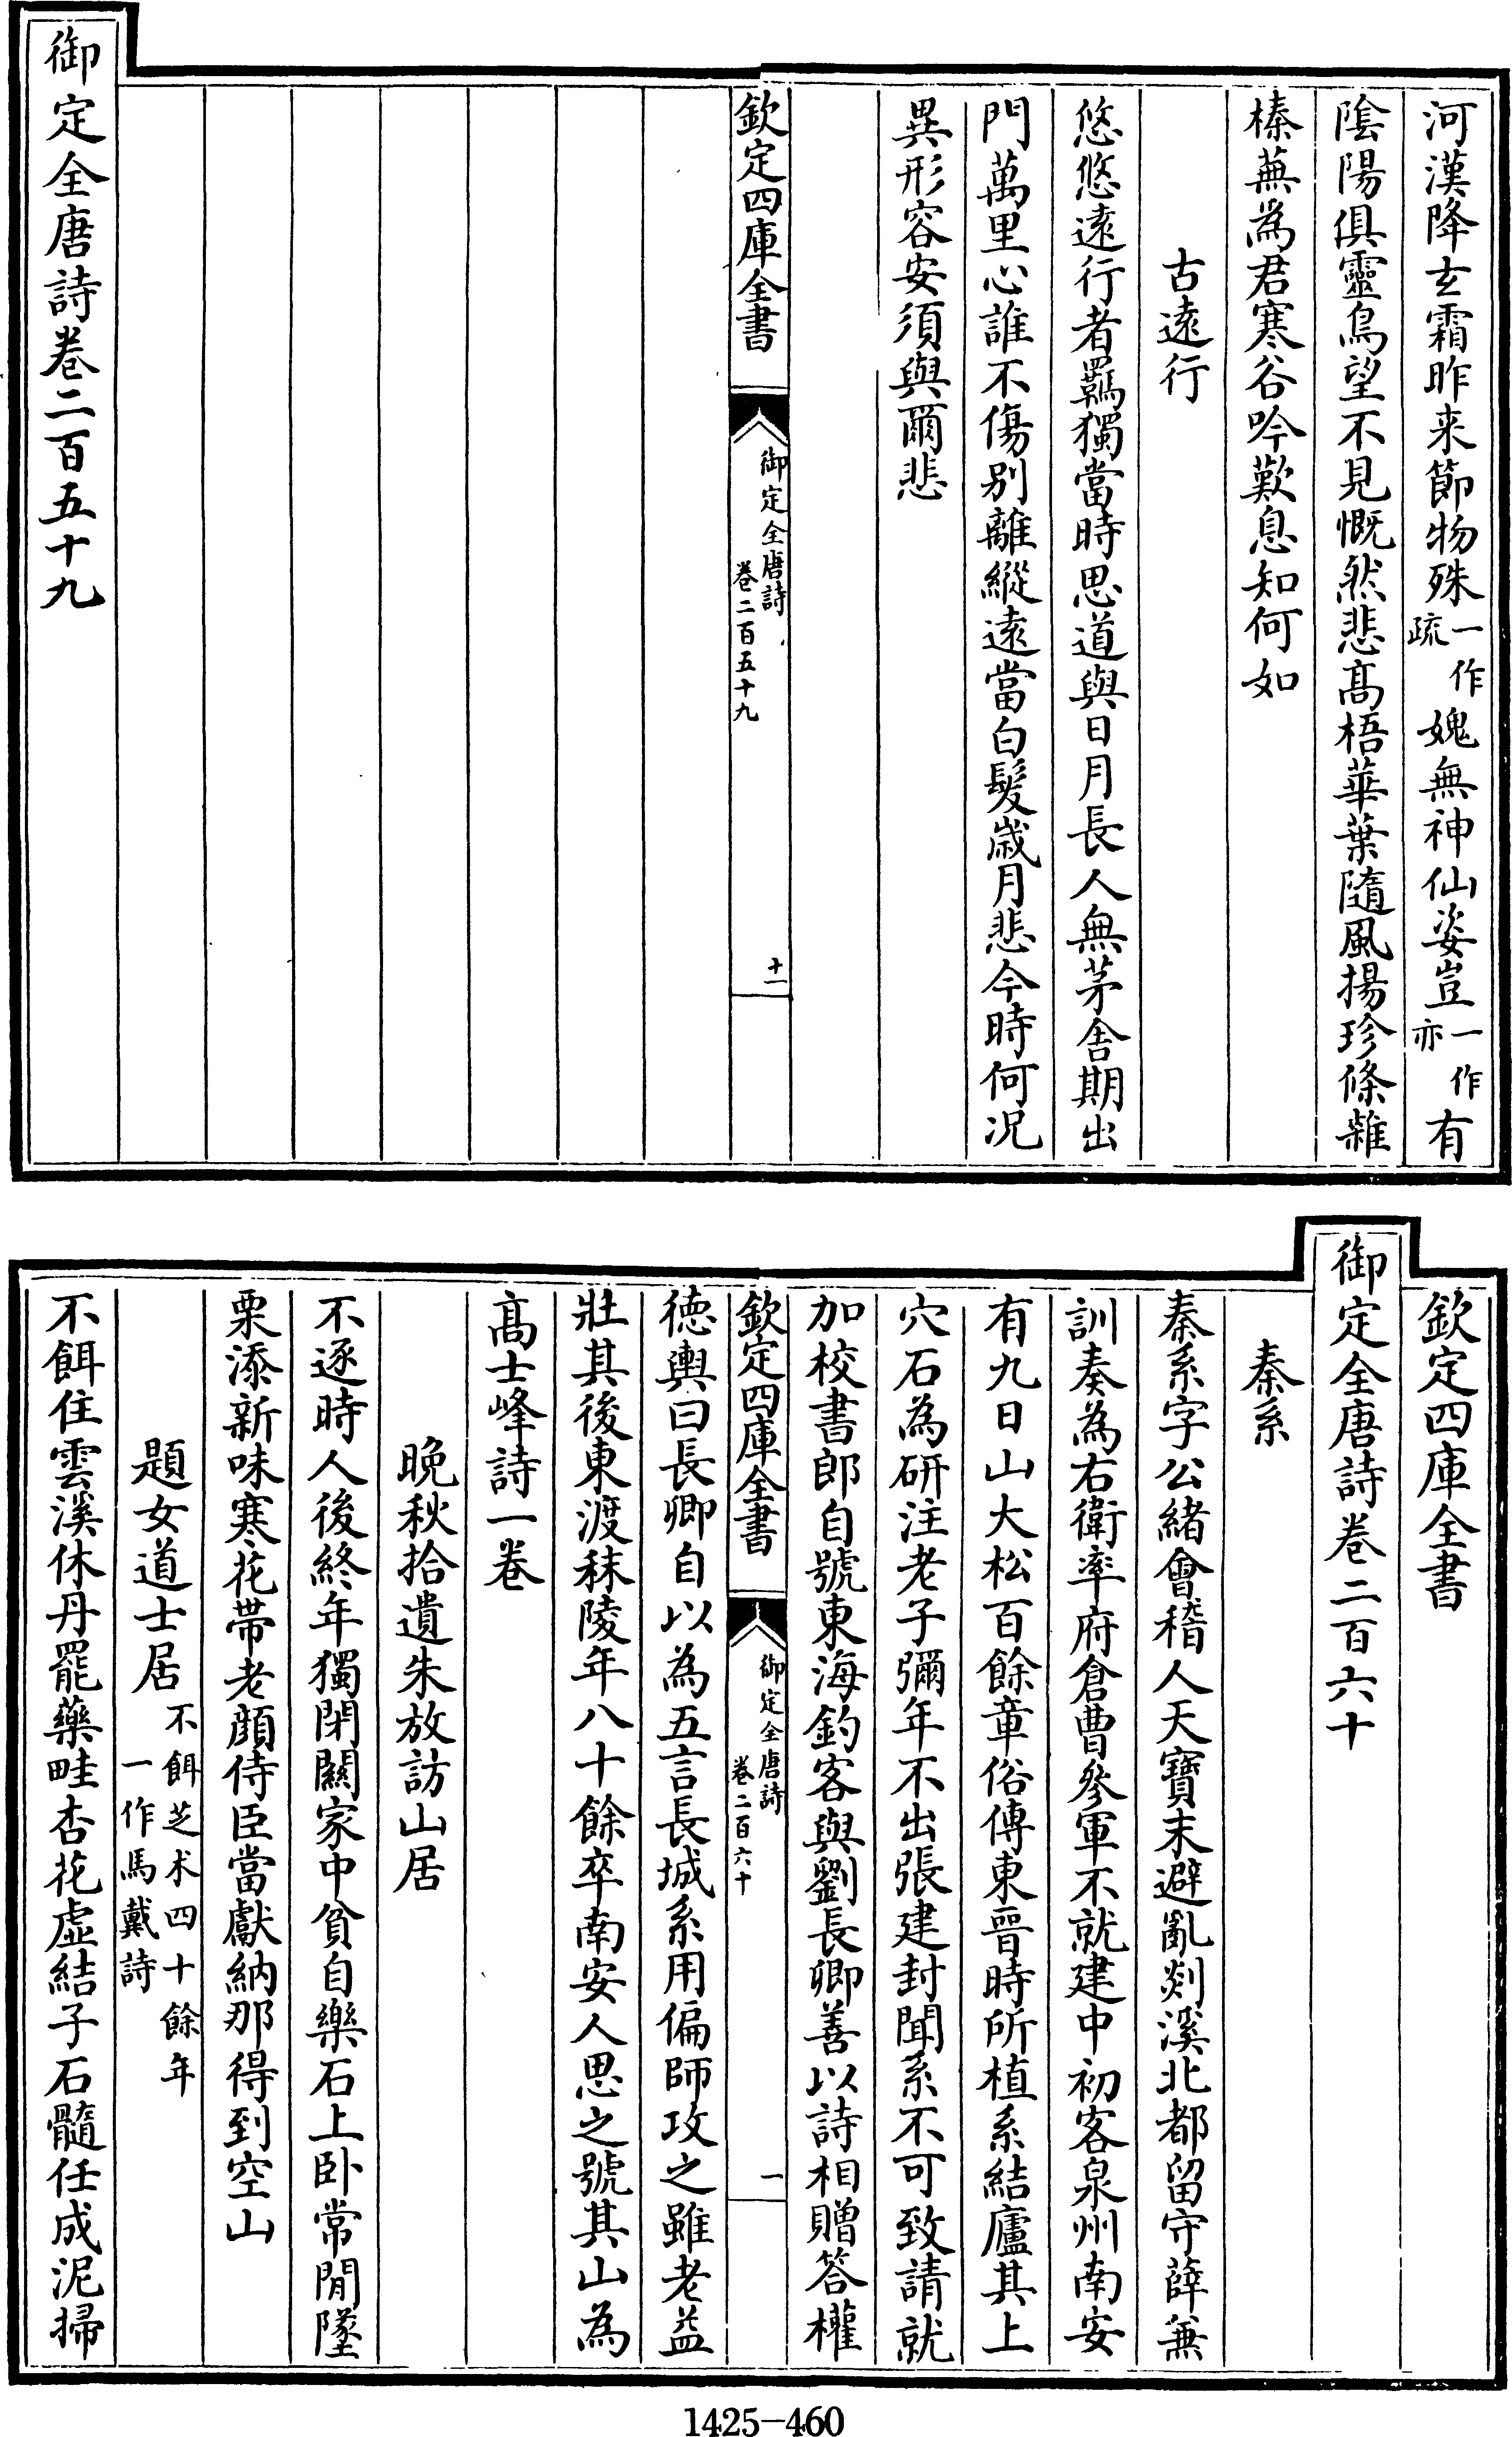 河漢降玄霜昨来節物殊一作疏媿無神仙姿豈一作亦有
陰陽俱靈鳥望不見慨然悲髙梧華葉隨風揚珍條雜
榛蕪為君寒谷吟歎息知何如
古遠行
悠悠遠行者羇獨當時思道與日月長人無茅舎期出
門萬里心誰不傷别離縱遠當白髮嵗月悲今時何况
異形容安須與爾悲
欽定四庫全書
御定全唐詩
卷二百五十九
十一
御定全唐詩卷二百五十九
欽定四庫全書
御定全唐詩卷二百六十
秦系
秦系字公緒會稽人天寶末避亂剡溪北都留守薛兼
訓奏為右衛率府倉曹參軍不就建中初客泉州南安
有九日山大松百餘章俗傳東晉時所植系結廬其上
穴石為研注老子彌年不出張建封聞系不可致請就
加校書郎自號東海釣客與劉長卿善以詩相贈答權
欽定四庫全書
御定全唐詩
卷二百六十
一
徳輿曰長卿自以為五言長城系用偏師攻之雖老益
壯其後東渡秣陵年八十餘卒南安人思之號其山為
髙士峰詩一卷
晚秋拾遺朱放訪山居
不逐時人後終年獨閉關家中貧自樂石上卧常閒墜
栗添新味寒花帶老顔侍臣當獻納那得到空山
題女道士居不餌芝术四十餘年一作馬戴詩
不餌住雲溪休丹罷藥畦杏花虚結子石髓任成泥掃
1425-460